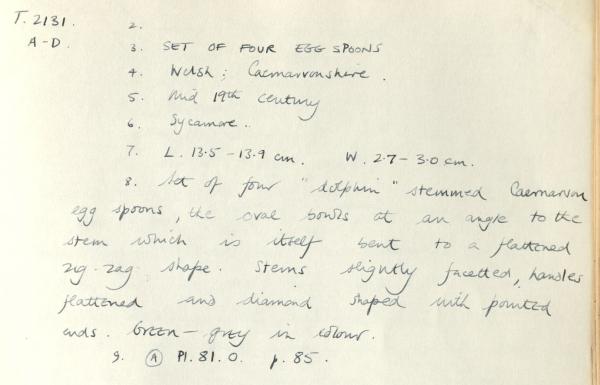 T. 2131. 2.
A-D. 3. SET OF FOUR EGG SPOONS
4. Welsh; Caernarvonshire.
5. Mid 19th century
6. Sycamore.
7. L. 13.5 - 13.9 cm. W. 2.7 - 3.0 cm.
8. Set of four "dolphin" stemmed Caernarvon
egg spoons, the oval bowls at an angle to the
stem which is itself bent to a flattened
zig-zag shape. Stems slightly facetted, handles
flattened and diamond shaped with pointed
ends. Green-grey in colour.
9. (A) Pl. 81. O. p. 85.